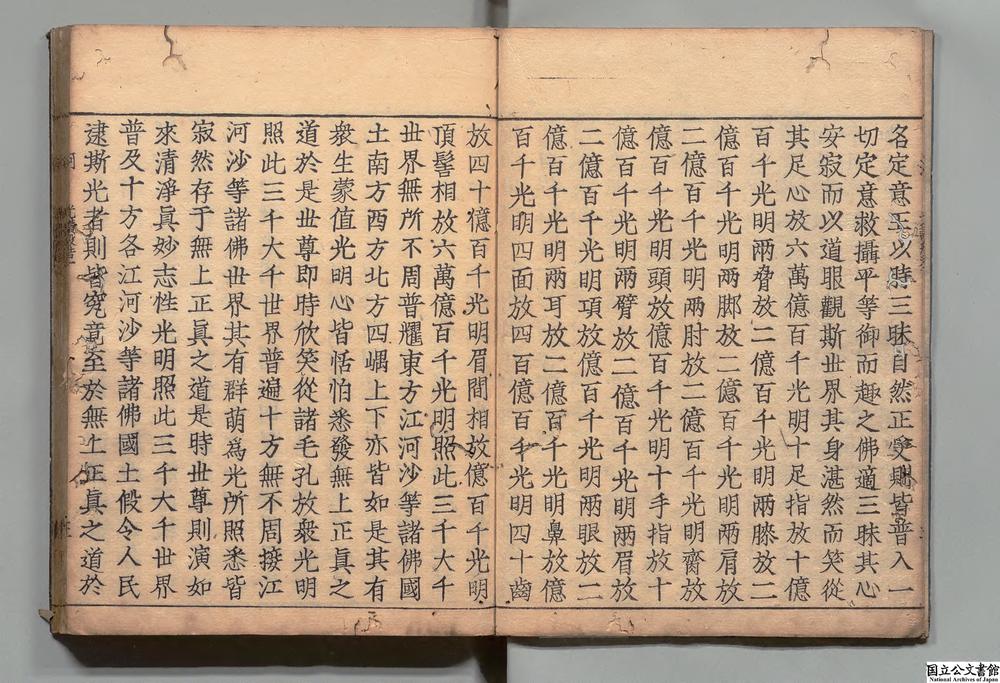 名定意王以時三昧自然正受則皆普入一
切定意救攝平等御而趣之佛適三昧其心
安寂而以道眼觀斯世界其身湛然而笑從
其足心放六萬億百千光明十足指放十億
百千光明兩脅放二億百千光明兩膝放二
億百千光明兩脚放二億百千光明兩肩放
二億百千光明兩肘放二億百千光明齎放
億百千光明頭放億百千光明十手指放十
億百千光明兩臂放二億百千光明兩眉放
二億百千光明項放億百千光明兩眼放二
億百千光明兩耳放二億百千光明鼻放億
百千光明四面放四百億百千光明四十齒
放四十億百千光明眉間相放億百千光明
頂髻相放六萬億百千光明照此三千大千
世界無所不周普耀東方江河沙等諸佛國
土南方西方北方四嵎上下亦皆如是其有
衆生蒙值光明心皆恬怕悉發無上正真之
道於是世尊即時欣笑從諸毛孔放衆光明
照此三千大千世界普遍十方無不周接江
河沙等諸佛世界其有群萌為光所照悉皆
寂然存于無上正真之道是時世尊則演如
來清淨真妙志性光明照此三千大千世界
普及十方各江河沙等諸佛國土假令人民
逮斯光者則皆究竟至於無上正真之道於
国立公文書館
National Archives of Japan